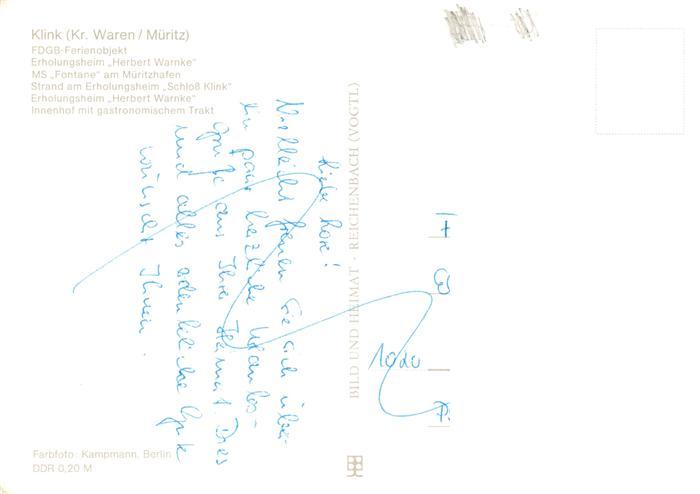 Klink (Kr. Waren / Müritz)
FDGB-Ferienobjekt
Erholungsheim „Herbert Warnke“
MS „Fontane“ am Müritzhafen
Strand am Erholungsheim „Schloß Klink“
Erholungsheim „Herbert Warnke“
Innenhof mit gastronomischem Trakt
Liebe
Vielleicht freuen Sie sich über
ein paar herzliche Urlaubs-
grüße aus Ihrer Heimat. Dies
und alles erdenkliche Gute
wünscht Ihnen
BILD UND HEIMAT · REICHENBACH (VOGTL)
1020
Farbfoto: Kampmann, Berlin
DDR 0,20 M